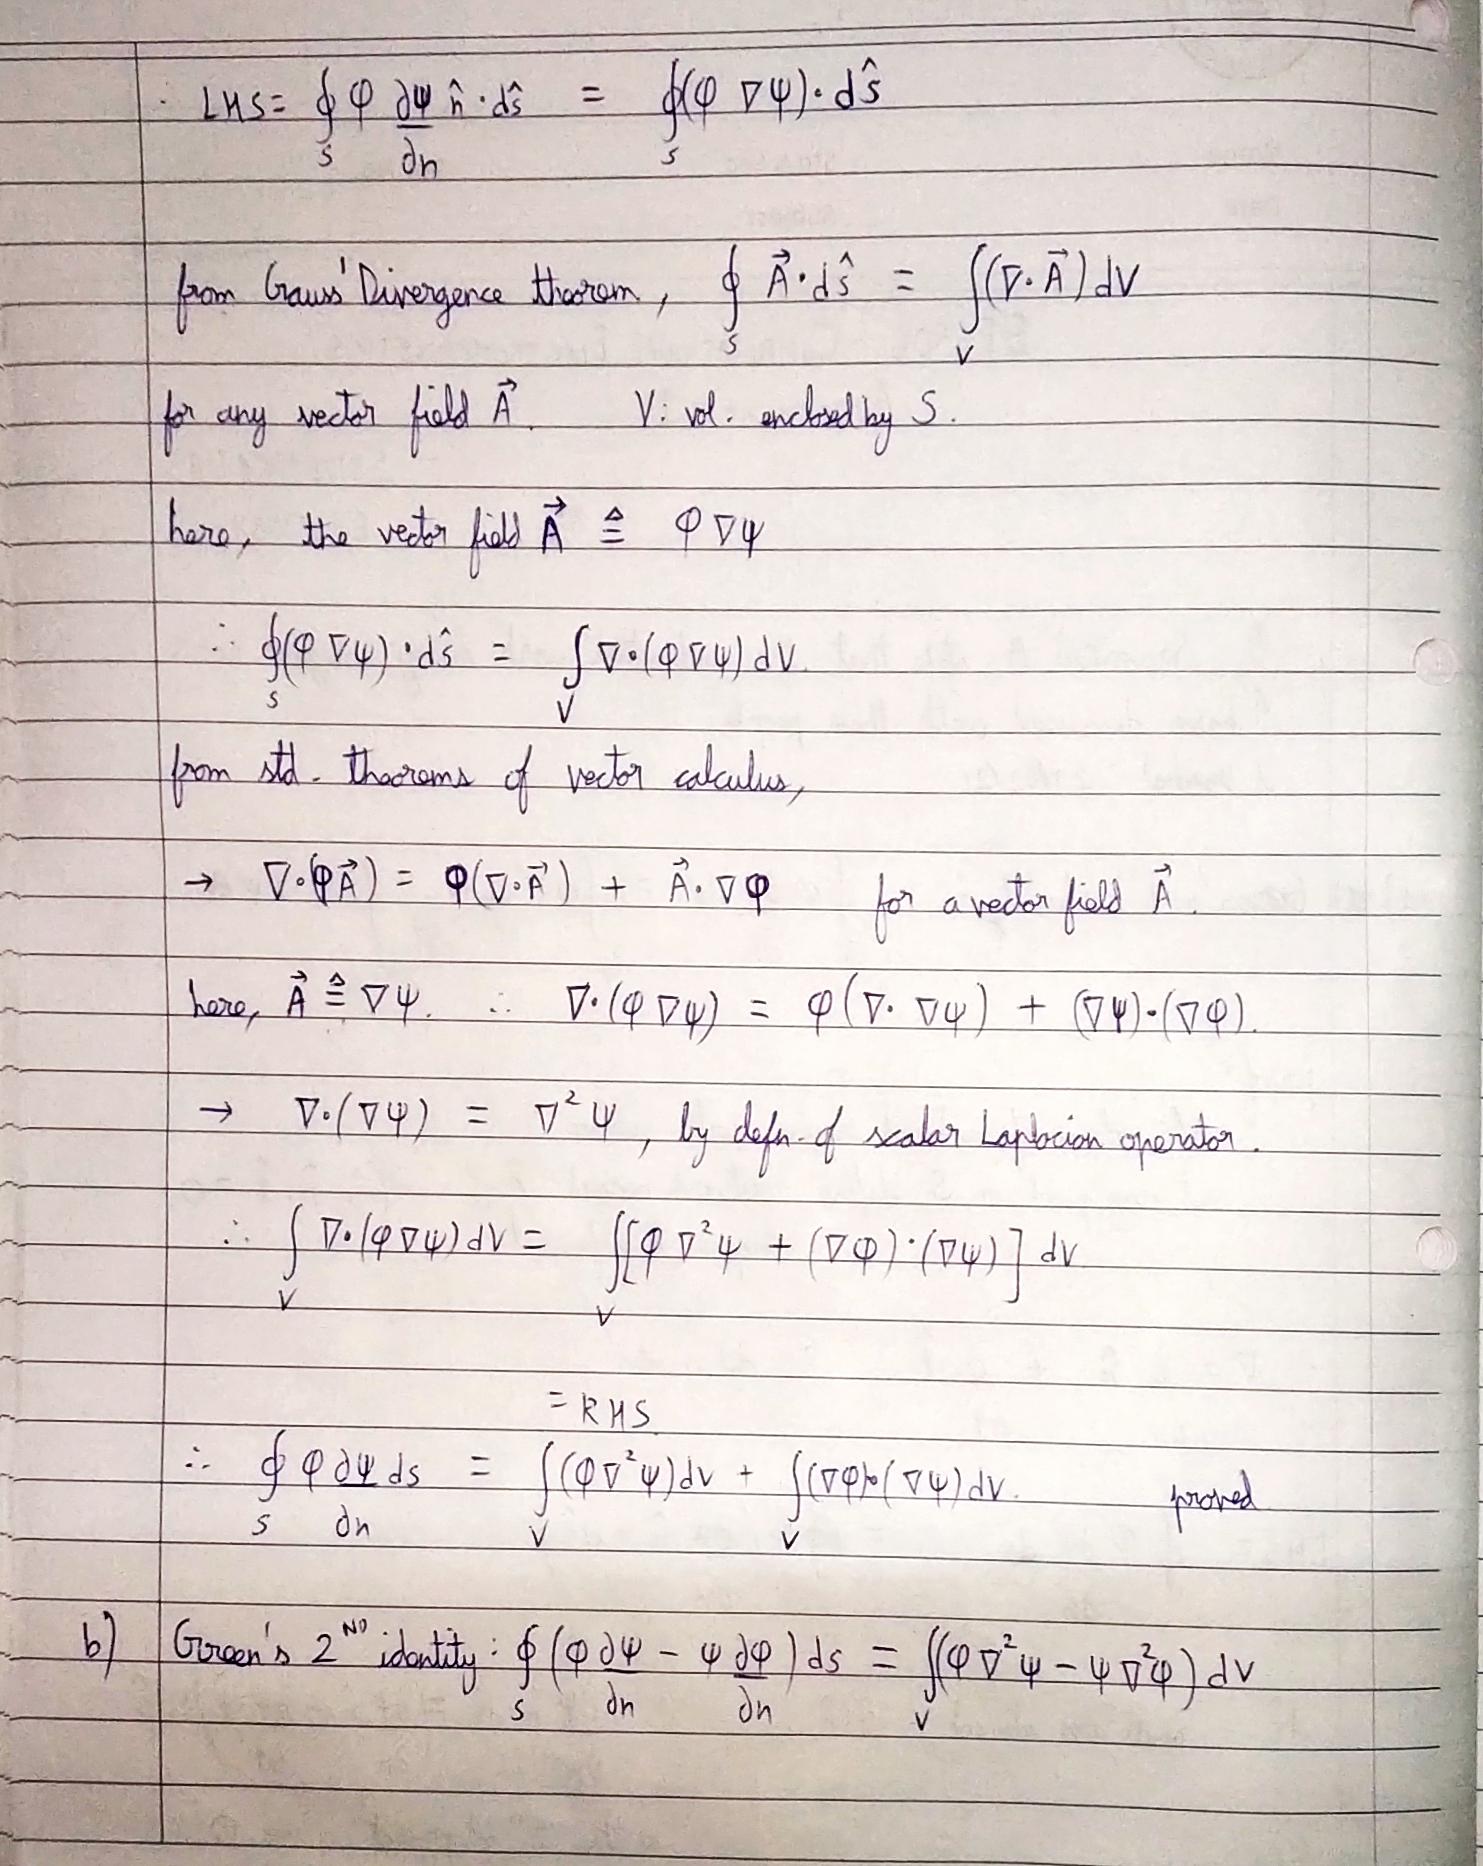 ∴ LHS = ∮_S φ ∂ψ/∂n n̂ · dŝ = ∮_S (φ ∇ψ) · dŝ
from Gauss' Divergence theorem, ∮_S A⃗ · dŝ = ∫_V (∇ · A⃗) dV
for any vector field A⃗. V: vol. enclosed by S.
here, the vector field A⃗ ≙ φ ∇ψ
∴ ∮_S (φ ∇ψ) · dŝ = ∫_V ∇ · (φ ∇ψ) dV.
from std. theorems of vector calculus,
→ ∇ · (φA⃗) = φ(∇ · A⃗) + A⃗ · ∇φ for a vector field A⃗.
here, A⃗ ≙ ∇ψ. ∴ ∇ · (φ ∇ψ) = φ(∇ · ∇ψ) + (∇ψ) · (∇φ).
→ ∇ · (∇ψ) = ∇²ψ, by defn. of scalar Laplacian operator.
∴ ∫_V ∇ · (φ∇ψ) dV = ∫_V [φ ∇²ψ + (∇φ) · (∇ψ)] dV
= RHS
∴ ∮_S φ ∂ψ/∂n ds = ∫_V (φ∇²ψ) dV + ∫_V (∇φ) · (∇ψ) dV. proved
b) Green's 2ND identity: ∮_S (φ ∂ψ/∂n − ψ ∂φ/∂n) ds = ∫_V (φ ∇²ψ − ψ ∇²φ) dV